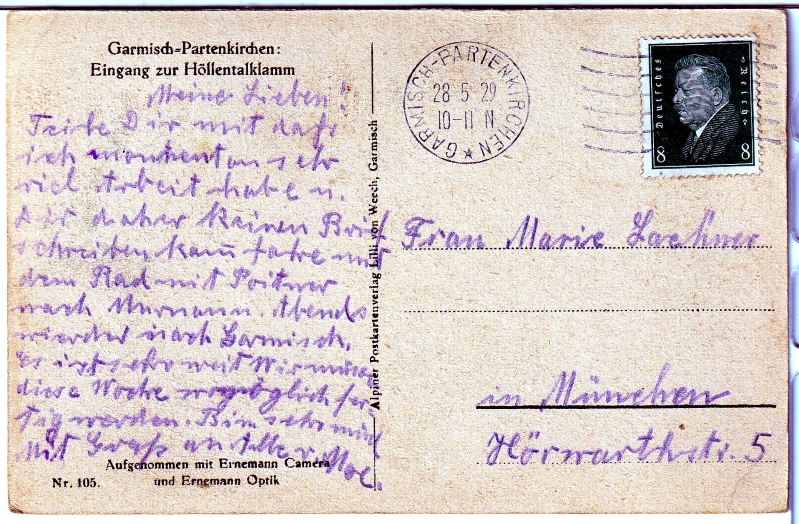 Garmisch-Partenkirchen:
Eingang zur Höllentalklamm
Meine Lieben!
Teile Dir mit daß
ich momentan sehr
viel Arbeit habe u.
Dir daher keinen Brief
schreiben kann fahre mit
dem Rad mit
nach Murnau. Abends
wieder nach Garmisch.
Es ist sehr weit Wir müssen
diese Woche womöglich fer
tig werden. Bin sehr müd
Mit Gruß an Alle
Aufgenommen mit Ernemann Camera
und Ernemann Optik
Nr. 105.
Alpiner Postkartenverlag Lilli von Weech, Garmisch
GARMISCH-PARTENKIRCHEN
28 5 29
10-11 N
Deutsches Reich
8 8
Frau Marie Lackner
in München
Hörwarthstr. 5